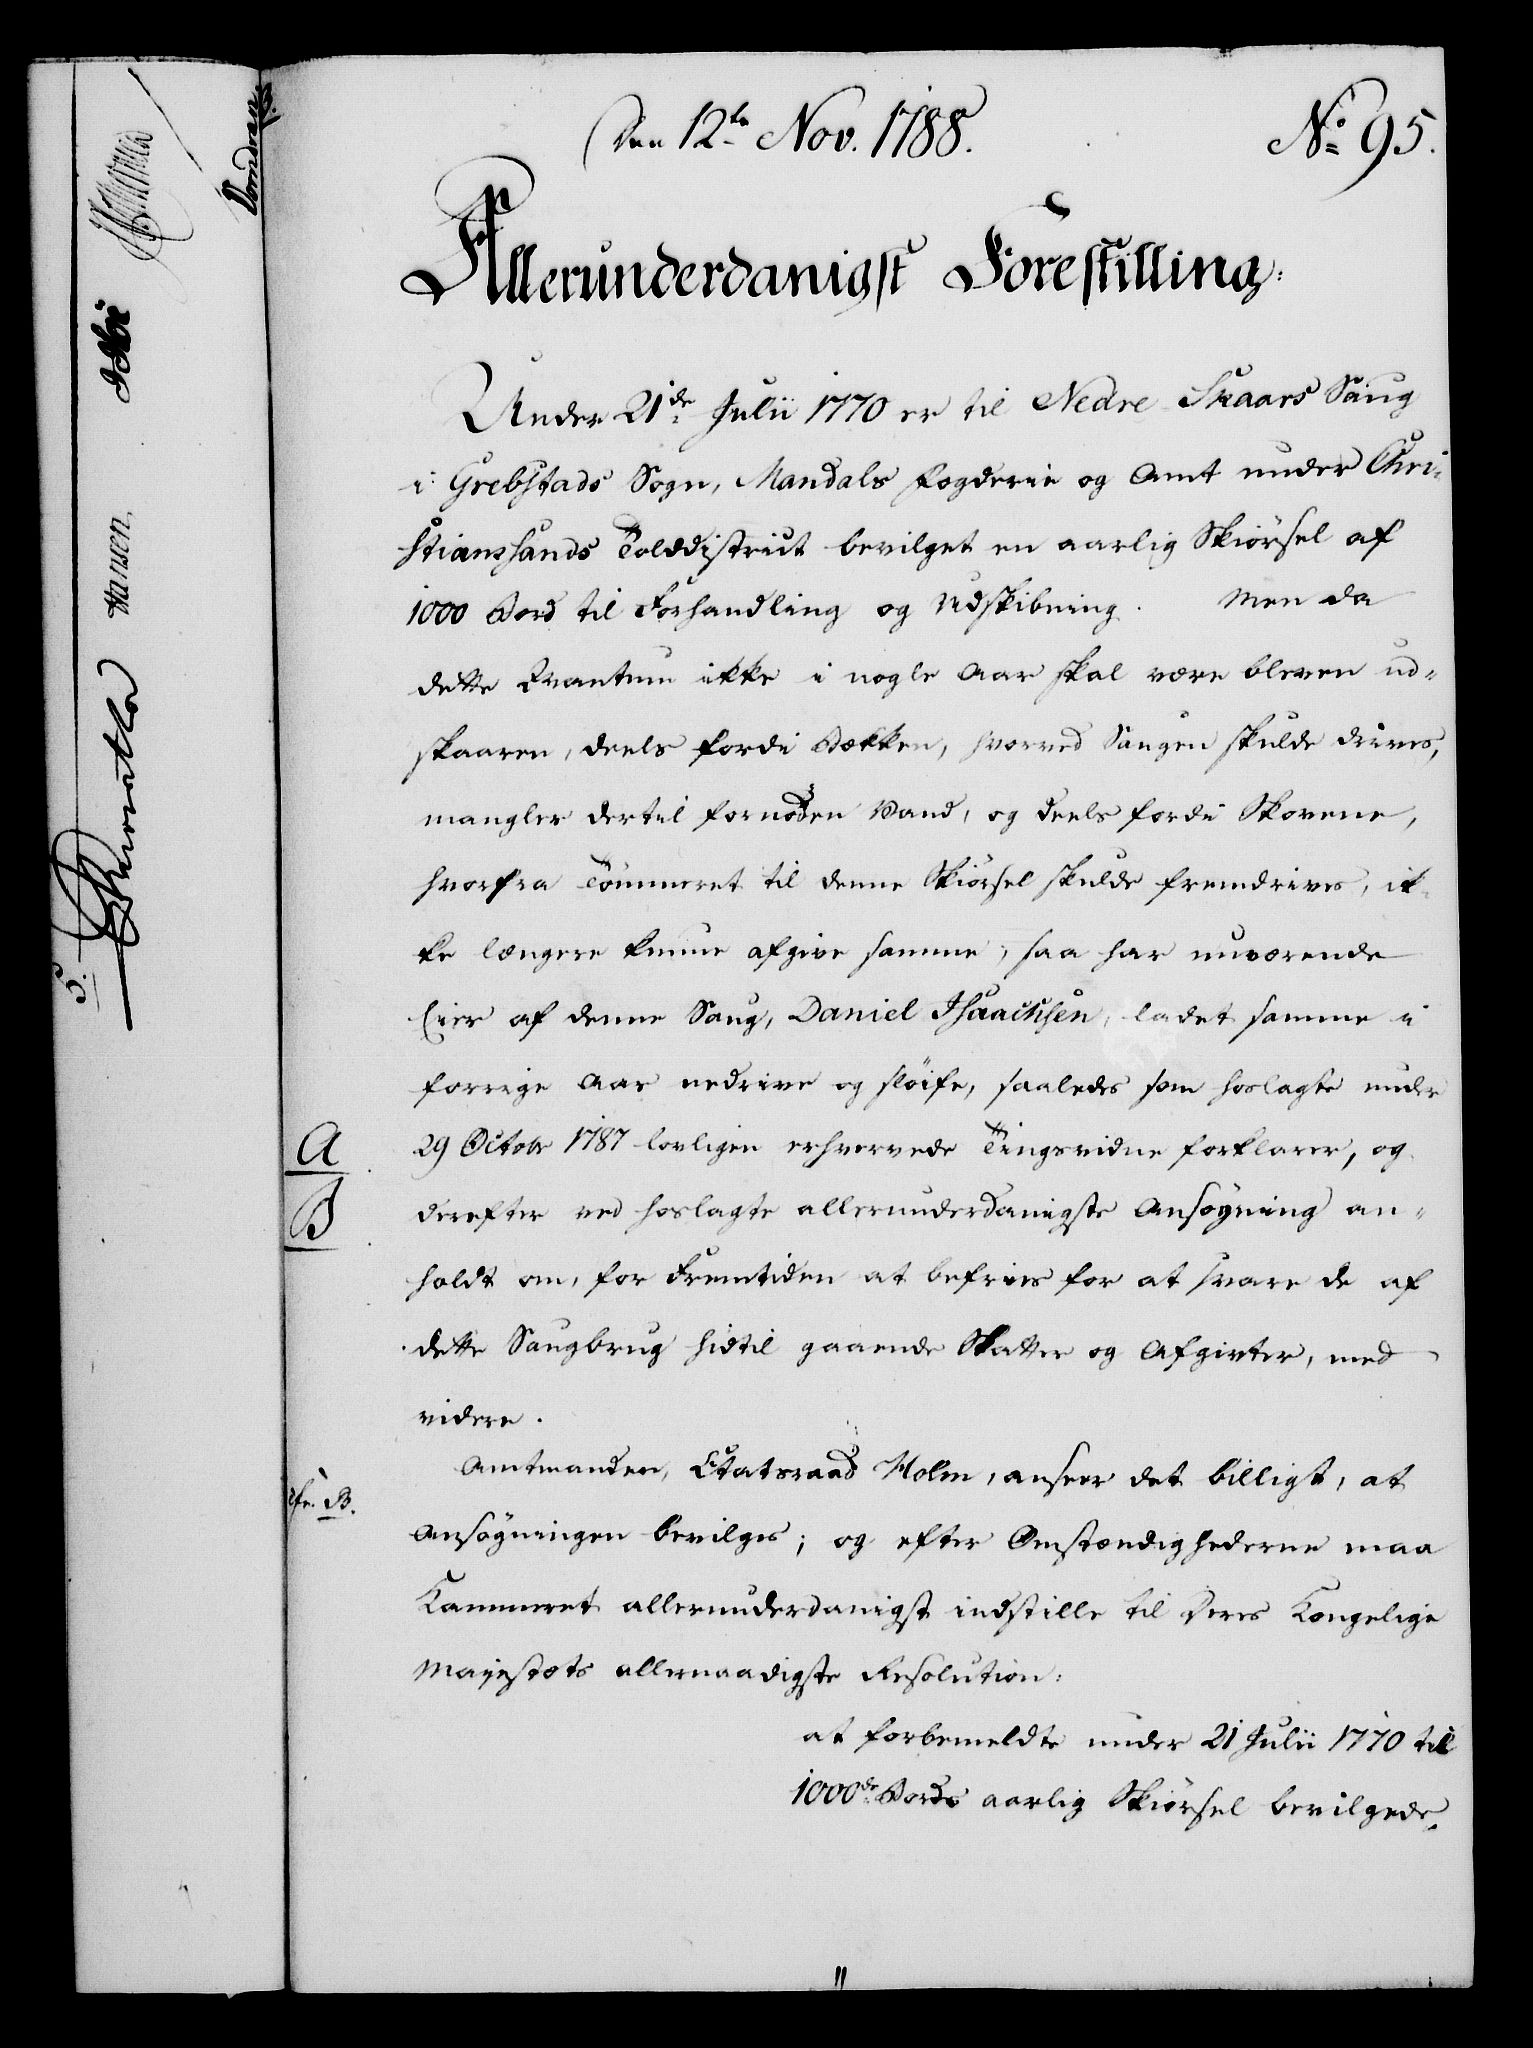 Den 12te Nov. 1788.
No 95.
Allerunderdanigst Forestilling:
Under 21de Julii 1770 er til Nedre Skaars Saug
i Grebstads Sogn, Mandals Fogderie og Amt under Chri-
stianssands Tolddistrict bevilget en aarlig Skiörsel af
1000 Bord til Forhandling og Udskibning. Men da
dette Qvantum ikke i nogle Aar skal være bleven ud-
skaaren, deels fordi Bækken, hvorved Saugen skulde drives,
mangler dertil fornöden Vand, og deels fordi Skovene,
hvorfra Tömmeret til denne Skiörsel skulde fremdrives, ik-
ke længere kunne afgive samme, saa har nuværende
Eier af denne Saug, Daniel Isaachsen, ladet samme i
forrige Aar nedrive og slöife, saaledes som hoslagte under
A
29 Octobr 1787 lovligen erhvervede Tingsvidne forklarer, og
B
derefter ved hoslagte allerunderdanigste Ansøgning an-
holdt om, for Fremtiden at befries for at svare de af
dette Saugbrug hidtil gaaende Skatter og Afgivter, med
videre.
Amtmanden, Etatsraad Holm, anseer det billigt, at
cfr. B.
Ansøgningen bevilges; og efter Omstændighederne maa
Kammeret allerunderdanigst indstille til Deres Kongelige
Majestæts allernaadigste Resolution:
at forbemeldte under 21 Julii 1770 til
1000de Bords aarlig Skiörsel bevilgede
Hansen.